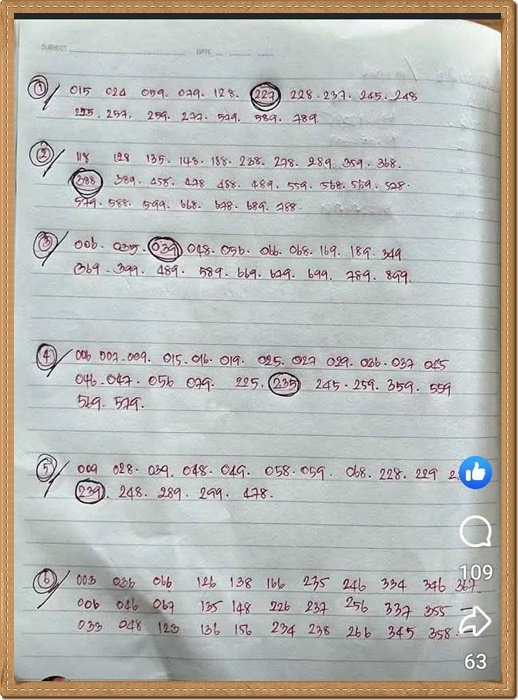 SUBJECT DATE
1/ 015 024 059. 079. 128. 227 228. 237. 245. 248
255. 257. 259. 277. 579. 589. 789
2/ 118 128 135. 148. 188. 238. 278. 289 359. 368.
388 389. 458. 478 488. 489. 559. 568. 569. 578.
579. 588. 599. 668. 678. 689. 788.
3/ 006. 035. 039 048. 056. 066. 068. 169. 189. 349
369. 399. 489. 589. 669. 679. 699. 789. 899.
4/ 006 007. 009. 015. 016. 019. 025. 027 029. 036. 037 045
046. 047. 056 079. 225. 235 245. 259. 359. 559
569. 579.
5/ 009 028. 039. 048. 049. 058. 059. 068. 228. 229
239. 248. 289. 299. 478.
6/ 003 036 066 126 138 166 235 246 334 346 367.
006 046 067 135 148 226 237 256 337 355
033 048 123 136 156 234 238 266 345 358.
109
63